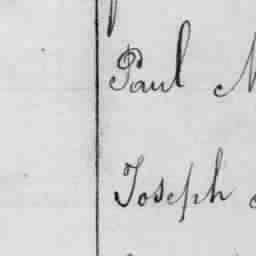 Paul
Joseph